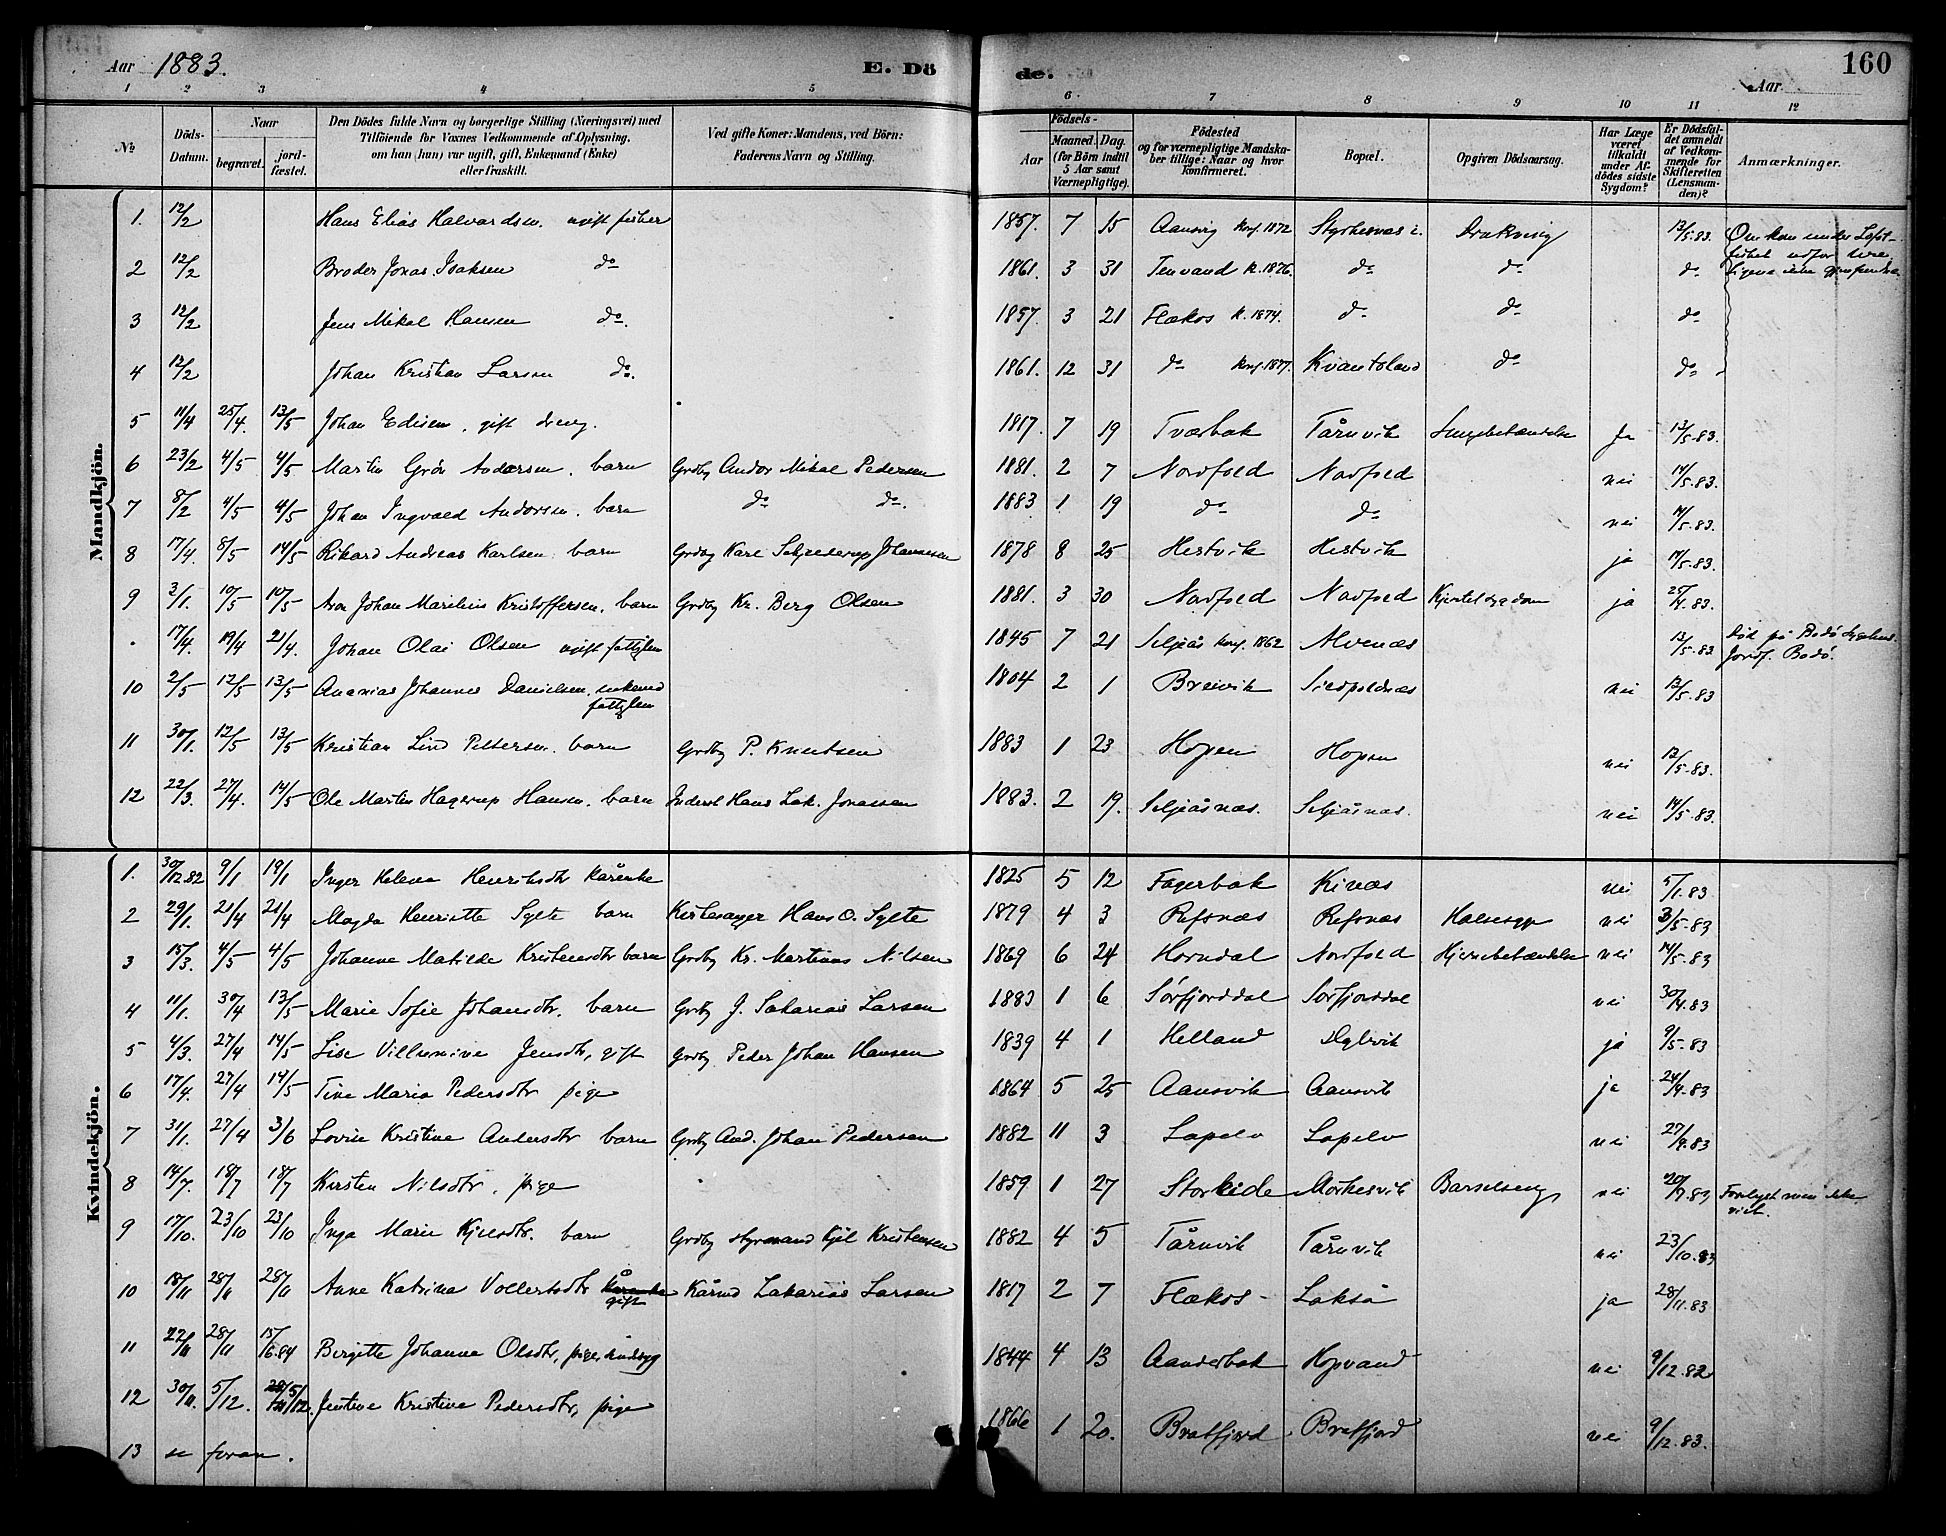 Aar 1883. E. Döde. Aar 160
1 2 3 4 5 6 7 8 9 10 11 12
No Döds-Datum. Naar begravet. jordfæstet. Den Dödes fulde Navn og borgerlige Stilling (Næringsvei) med Tilföiende for Voxnes Vedkommende af Oplysning, om han (hun) var ugift, gift, Enkemand (Enke) eller fraskilt. Ved gifte Koner: Mandens, ved Börn: Faderens Navn og Stilling. Födsels- Aar Maaned. Dag. (for Börn indtil 5 Aar samt Værnepligtige). Födested og for værnepligtige Mandskaber tillige: Naar og hvor konfirmeret. Bopæl. Opgiven Dödsaarsag. Har Læge været tilkaldt under Afdödes sidste Sygdom? Er Dödsfaldet anmeldt af Vedkommende for Skifteretten (Lensmanden)? Anmærkninger.
Mandkjön.
1. 12/2 Hans Elias Halvardsen. ugift fisker 1857. 7 15 Aansvig konf. 1872 Styrkesnæs Drukning 12/5.83. Omkom under Lofot-
2 12/2 Broder Jonas Isaksen do 1861. 3 31 Tenvand k. 1876. do do do
3 12/2 Jens Mikal Hansen do. 1857. 3 21 Flækos k. 1874. do do do
4 12/2 Johan Kristian Larsen do. 1861. 12 31 do konf. 1877. Kvantoland do do
5 11/4 25/4. 13/5 Johan Edisen, gift dreng. 1817. 7 19 Tværbak Tårnvik Lungebetændelse Ja 13/5.83.
6 23/2 4/5 4/5 Martin Grön Andorsen. barn Grdby Andor Mikal Pedersen 1881. 2 7 Nordfold Nordfold nei 14/5.83.
7 8/2 4/5 4/5 Johan Ingvald Andorsen. barn do do. 1883 1 19 do do nei 14/5.83.
8 17/4. 8/5 14/5 Rikard Andreas Karlsen barn Grdby Karl Johannesen 1878 8 25 Hestvik Hestvik ja 14/5.83.
9 2/1. 10/5 10/5 Aron Johan Marelius Kristoffersen. barn Grdby Kr. Berg Olsen 1881. 3 30 Nordfold Nordfold Kjertelsygdom ja 25/4.83.
17/4. 19/4 21/4. Johan Olai Olsen ugift fattiglem 1845 7 21 Seljeås konf. 1862 Alvenæs 13/5.83 Död på Bodö Sygehus. Jordf. Bodö.
10 2/5 12/5 13/5 Ananias Johannes Danielsen, enkemd fattiglem 1804 2 1 Breivik nei 12/5.83
11 30/1. 12/5 13/5 Kristian Lind Pettersen. barn Grdby P. Knudsen 1883 1 23 Hopen Hopen nei 12/5.83.
12 22/3. 27/4. 14/5 Ole Martin Hagerup Hansen. barn Inderst Hans Zak. Jonassen 1883. 2 19. Seljeåsnæs. Seljeåsnæs. nei 14/5.83.
Kvindekjön.
1. 30/12.82 9/1 19/1 Inger Helena Henriksdtr kårenke 1825 5 12 Fagerbak Kinæs nei 5/1.83
2 29/1. 21/4 21/4 Magda Henriette Sylte barn Kirkesanger Hans O. Sylte 1879 4 3 Refsnæs Refsnæs Halsesyge nei 3/5.83
3 15/3. 4/5 4/5 Johanne Matilde Kristensdtr barn Grdby Kr. Martinus Nilsen 1869 6 24 Horndal Nordfold Hjernebetændelse nei 14/5.83
4 11/1. 30/4 13/5 Marie Sofie Johansdtr. barn Grdby J. Sakarias Larsen 1883 1 6 Sörfjorddal Sörfjorddal nei 30/4.83
5 4/3. 27/4 14/5 Lise Villumine Jensdtr, gift Grdby Peder Johan Hansen 1839 4 1 Helland Dybvik ja 9/5.83
6 17/4. 27/4 14/5 Tine Maria Pedersdtr pige 1864 5 25 Aansvik Aansvik ja 24/4.83
7 31/1. 27/4 3/6 Lovise Kristine Andersdtr barn Grdby And. Johan Pedersen 1882 11 3 Lapelv Lapelv nei 27/4.83
8 14/7. 18/7 18/7 Kirsten Nilsdtr. pige 1859 1 27 Storlide Mörkesvik Barselseng nei 20/7.83
9 17/10. 23/10 23/10 Inga Marie Kjelsdtr. barn Grdby styrmand Kjel Kristensen 1882 4 5 Tårnvik Tårnvik nei 23/10.83
10 18/11 28/11 28/11 Anne Katrina Vollertsdtr kårenke gift Kårmd Zakarias Larsen 1817 2 7 Flækos - Lakså ja 28/11.83
11 22/11 28/11 15/6.84 Birgitte Johanne Olsdtr, pige, sindssyg 1844 4 13 Aanderbak Hopvand nei 9/12.82
12 30/11. 5/12. 5/12. Jentine Kristine Pedersdtr, pige 1866 1 20. Bratfjord Bratfjord nei 9/12.83.
13 se foran.